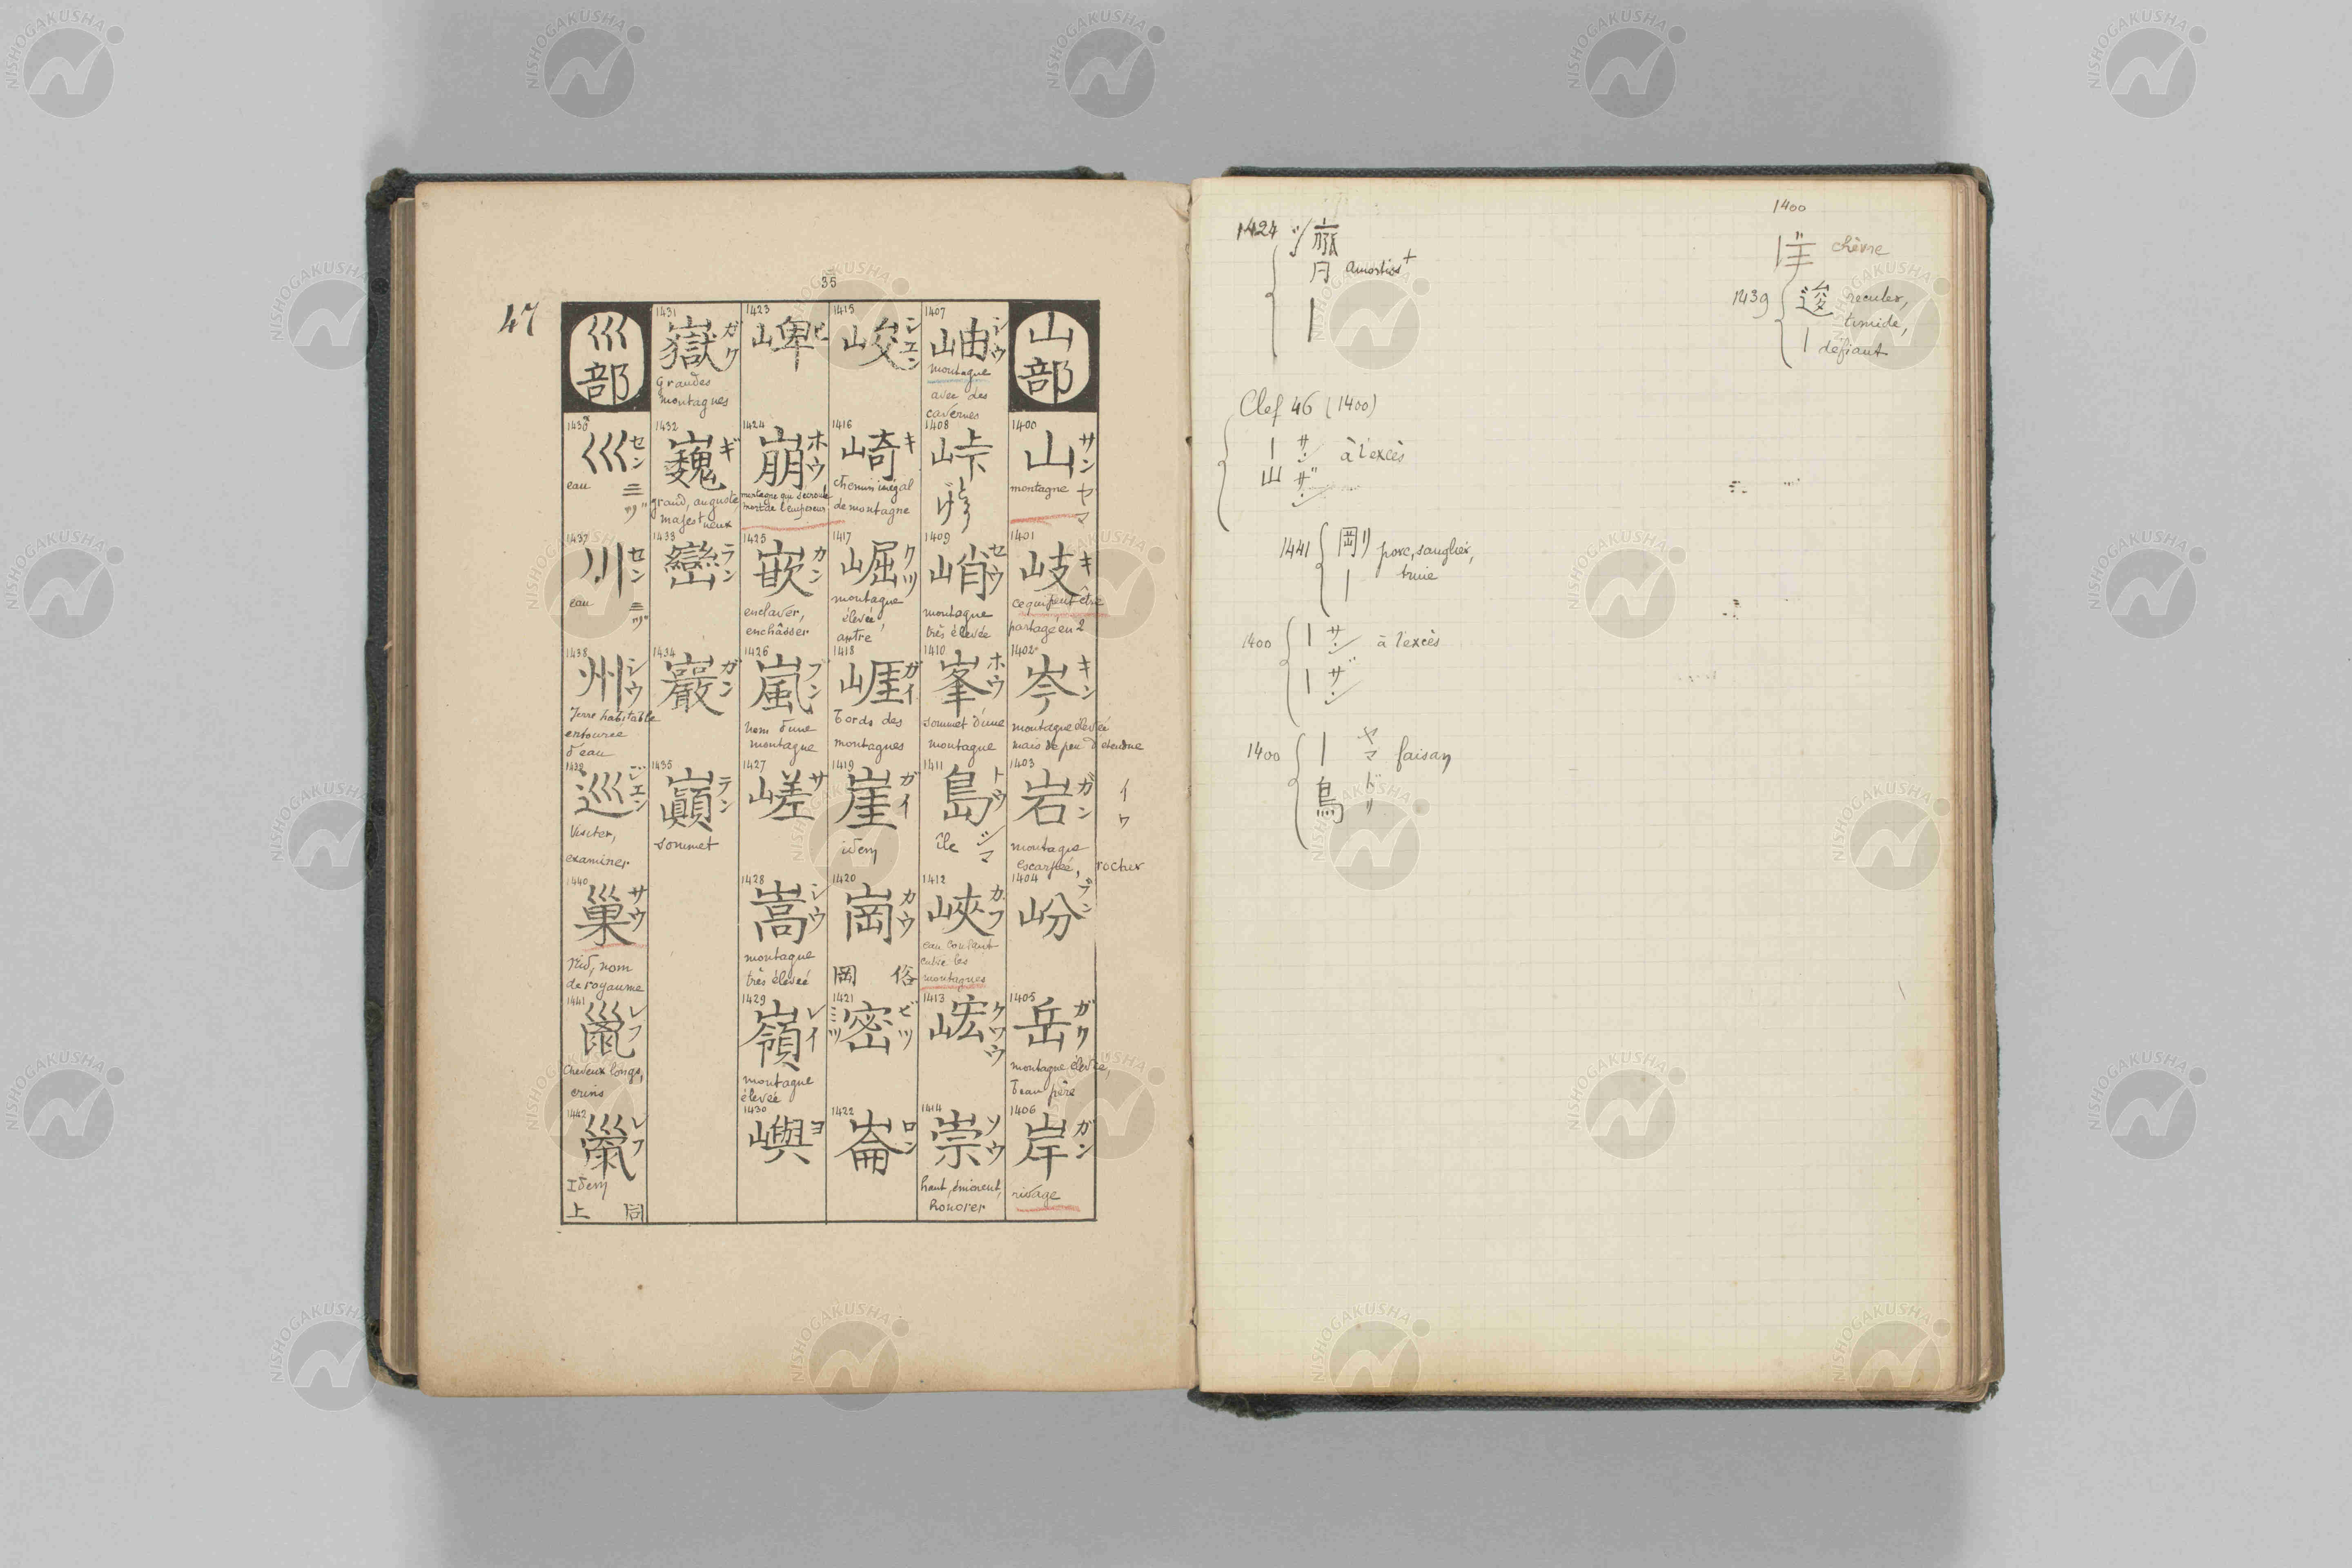 35
47
山部
1400 山 サン
montagne ヤマ
1401 岐 キ
ce qui peut être
partagé en 2
1402 岑 キン
montagne élevée
mais de peu d'étendue
1403 岩 ガン イワ
montagne
escarpée, rocher
1404 岎 フン
1405 岳 ガク
montagne élevée,
beau père
1406 岸 ガン
rivage
1407 岫 シウ
montagne
avec des
cavernes
1408 峠
とうげ
1409 峭 セウ
montagne
très élevée
1410 峯 ホウ
sommet d'une
montagne
1411 島 トウ
île シマ
1412 峽 カフ
eau coulant
entre les
montagnes
1413 峵 クワウ
1414 崇 ソウ
haut, éminent,
honorer
1415 峻 シユン
1416 崎 キ
chemin inégal
de montagne
1417 崛 クツ
montagne
élevée,
antre
1418 崕 ガイ
bords des
montagnes
1419 崖 ガイ
idem
1420 崗 カウ
俗岡
1421 密 ビツ ミツ
1422 崙 ロン
1423 崥 ヒ
1424 崩 ホウ
montagne qui s'écroule
mort de l'empereur
1425 嵌 カン
enclaver,
enchâsser
1426 嵐 フン
nom d'une
montagne
1427 嵯 サ
1428 嵩 シウ
montagne
très élevée
1429 嶺 レイ
montagne
élevée
1430 嶼 ヨ
1431 嶽 ガク
Grandes
montagnes
1432 巍 ギ
grand, auguste,
majestueux
1433 巒 ラン
1434 巖 ガン
1435 巓 テン
sommet
巛部
1436 巛 セン
eau ミヅ
1437 川 セン
eau ミヅ
1438 州 シウ
Terre habitable
entourée
d'eau
1439 巡 ジユン
Visiter,
examiner
1440 巢 サウ
Nid, nom
de royaume
1441 巤 レフ
Cheveux longs,
crins
1442 レフ
Idem
同上
1400
1424
月
chèvre
1439 逡 reculer,
timide,
défiant
Clef 46 (1400)
| サン à l'excès
山 ザン
1441 剛 porc, sanglier,
truie
1400 | サン à l'excès
| ザン
1400 | ヤマ faisan
鳥 ドリ
NISHOGAKUSHA